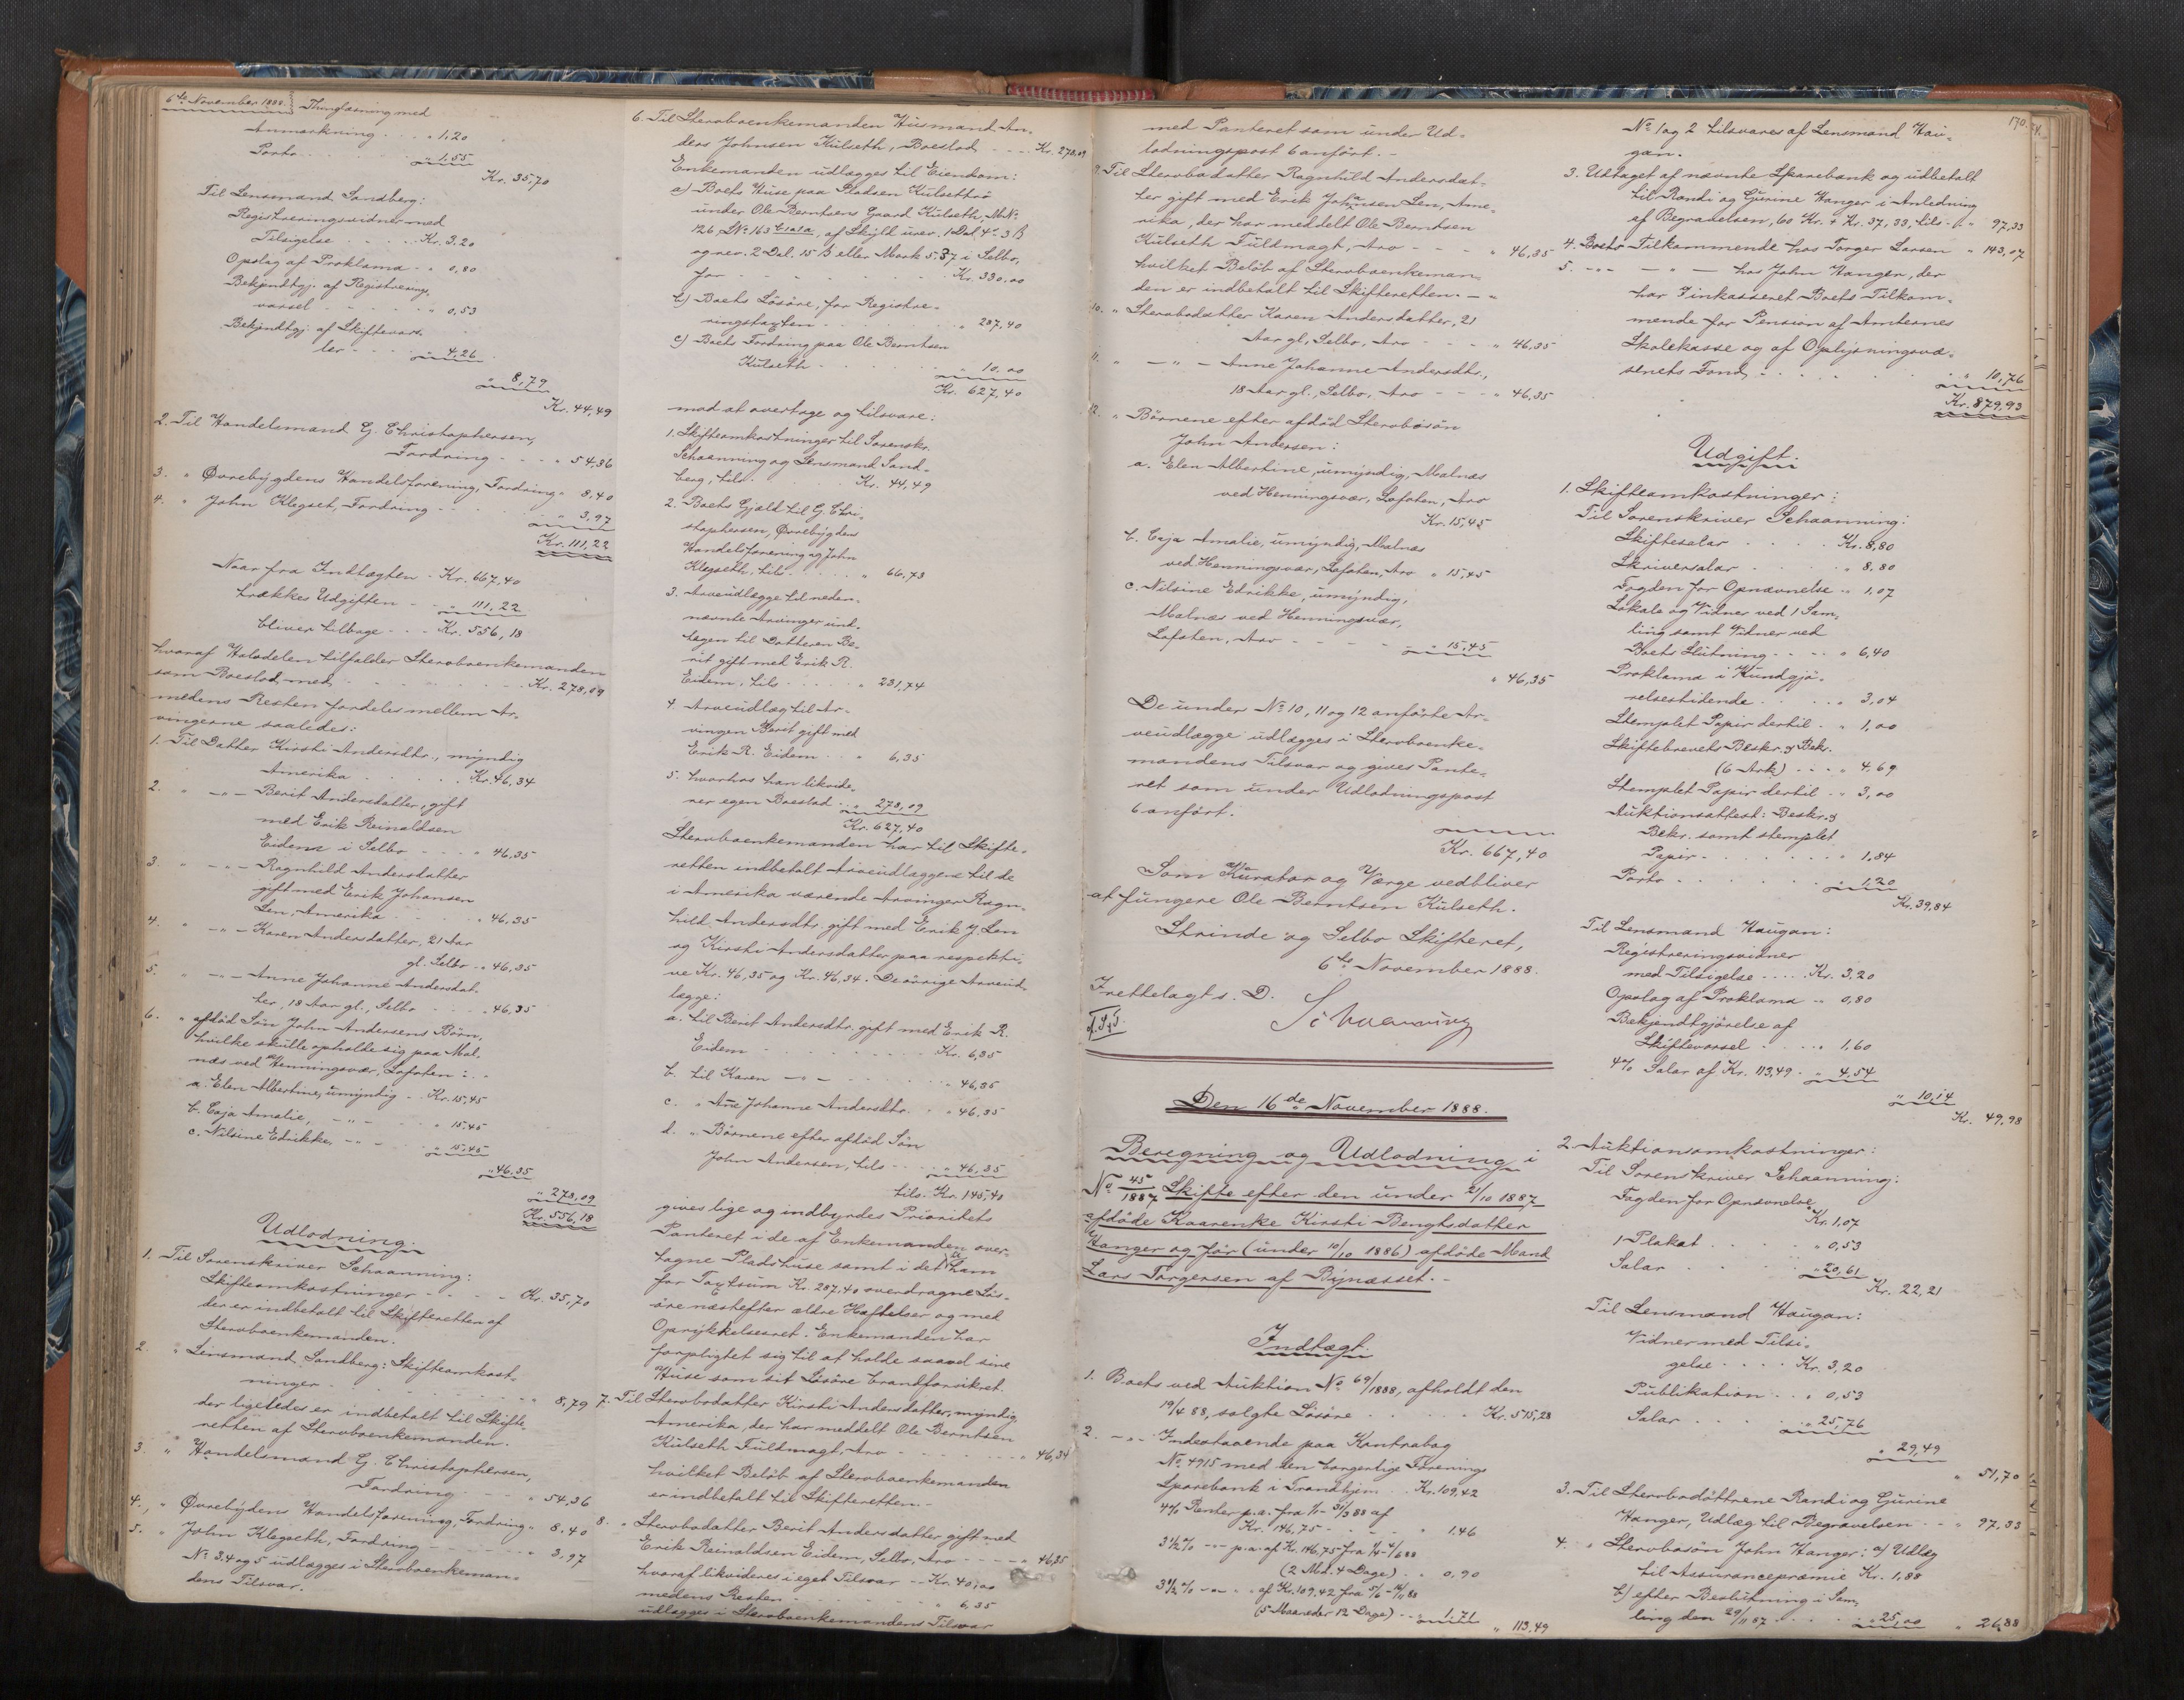 6te November 1888. Thinglæsning med
Anmærkning . . . „ 1,20
Porto . . . „ 1,55
Kr. 35,70
Til Lensmand Sandberg:
Registreringsvidner med
Tilsigelse . . . Kr. 3,20
Opslag af Proklama . . „ 0,80
Bekjendtgj. af Registrerings-
varsel . . . „ 0,53
Bekjendtgj. af Skiftevars-
ler . . . „ 4,26
„ 8,79
Kr. 44,49
2. Til Handelsmand G. Christophersen,
Fordring . . . „ 54,36
3. „ Øvrebygdens Handelsforening, Fordring „ 8,40
4. „ John Klegset, Fordring . . . „ 3,97
Kr. 111,22
Naar fra Indtægten . Kr. 667,40
trækkes Udgiften . . „ 111,22
bliver tilbage . . . Kr. 556,18
hvoraf Halvdelen tilfalder Stervboenkemanden
som Boeslod med . . . Kr. 278,09
medens Resten fordeles mellem Ar-
vingerne saaledes:
1. Til Datter Kirsti Andersdtr., myndig
Amerika . . . Kr. 46,34
2. „ — „ — Berit Andersdatter, gift
med Erik Reinaldsen
Eidem i Selbo . . . „ 46,35
3. „ — „ — Ragnhild Andersdatter
gift med Erik Johansen
Len, Amerika . . . „ 46,35
4. „ — „ — Karen Andersdatter, 21 Aar
gl. Selbo . . „ 46,35
5. „ — „ — Anne Johanne Andersdat-
ter, 18 Aar gl., Selbo . . . „ 46,35
6. „ afdød Søn John Andersens Børn,
hvilke skulle opholde sig paa Mal-
næs ved Henningsvær, Lofoten: . .
a. Elen Albertine, umyndig . . Kr. 15,45
b. Caja Amalie, — „ — . . „ 15,45
c. Nilsine Edrikke, — „ — . . „ 15,45
„ 46,35
„ 278,09
Kr. 556,18
Udlodning.
1. Til Sorenskriver Schaanning:
Skifteomkostninger . . . Kr. 35,70
der er indbetalt til Skifteretten af
Stervboenkemanden.
2. „ Lensmand Sandberg: Skifteomkost-
ninger . . . „ 8,79
der ligeledes er indbetalt til Skifte-
retten af Stervboenkemanden.
3. „ Handelsmand G. Christophersen,
Fordring . . . „ 54,36
4. „ Øvrebydens Handelsforening, Fordring „ 8,40
5. „ John Klegseth, Fordring . . . „ 3,97
No 3, 4 og 5 udlægges i Stervboenkeman-
dens Tilsvar.
6. Til Stervboenkemanden Husmand An-
ders Johnsen Kulseth, Boeslod . . . Kr. 278,09
Enkemanden udlægges til Eiendom:
a) Boets Huse paa Pladsen Kulsettrø
under Ole Berntsens Gaard Kulseth, M.No
126, L.No 163 b1a1a, af Skyld uver. 1 Dal. 4 ¢ 3 β
og rev. 2 Dal. 15 β eller Mark 5.37 i Selbo,
for . . . Kr. 330,00
b) Boets Løsøre, for Registre-
ringstaxten . . . „ 287,40
c) Boets Fordring paa Ole Berntsen
Kulseth . . . „ 10,00
Kr. 627,40
mod at overtage og tilsvare:
1. Skifteomkostninger til Sorenskr.
Schaanning og Lensmand Sand-
berg, tils. . . Kr. 44,49
2. Boets Gjæld til G. Chri-
stophersen, Øvrebygdens
Handelsforening og John
Klegseth, tils. . . . „ 66,73
3. Arveudlægge til neden-
nævnte Arvinger und-
tagen til Datteren Be-
rit gift med Erik R.
Eidem, tils. . . „ 231,74
4. Arveudlæg til Ar-
vingen Berit gift med
Erik R. Eidem . . „ 6,35
5. hvorhos han likvide-
rer egen Boeslod . . „ 278,09
Kr. 627,40
Stervboenkemanden har til Skifte-
retten indbetalt Arveudlæggene til de
i Amerika værende Arvinger Ragn-
hild Andersdtr. gift med Erik J. Len
og Kirsti Andersdatter paa respekti-
ve Kr. 46,35 og Kr. 46,34. De øvrige Arveud-
lægge:
a. til Berit Andersdtr. gift med Erik R.
Eidem . . . Kr. 6,35
b. til Karen — „ — . . . „ 46,35
c. „ Anne Johanne Andersdtr. . . „ 46,35
d. „ Børnene efter afdød Søn
John Andersen, tils . . . „ 46,35
tils. Kr. 145,40
gives lige og indbyrdes Prioritets
Panteret i de af Enkemanden over-
tagne Pladshuse samt i det ham
for Taxtsum Kr. 287,40 overdragne Løs-
øre næstefter ældre Hæftelser og med
Oprykkelsesret. Enkemanden har
forpligtet sig til at holde saavel sine
Huse som sit Løsøre brandforsikret.
7. Til Stervbodatter Kirsti Andersdatter, myndig
Amerika, der har meddelt Ole Berntsen
Kulseth Fuldmagt, Arv . . . „ 46,34
hvilket Beløb af Stervboenkemanden
er indbetalt til Skifteretten.—
8. „ Stervbodatter Berit Andersdatter gift med
Erik Reinaldsen Eidem, Selbo, Arv . . . „ 46,35
hvoraf likvideres i eget Tilsvar . . Kr. 40,00
medens Resten . . . „ 6,35
udlægges i Stervboenkemandens Tilsvar
med Panteret som under Ud-
lodningspost 6 anført.—
9. Til Stervbodatter Ragnhild Andersdat-
ter gift med Erik Johnsen Len, Ame-
rika, der har meddelt Ole Berntsen
Kulseth Fuldmagt, Arv . . . „ 46,35
hvilket Beløb af Stervboenkeman-
den er indbetalt til Skifteretten.—
10. „ Stervbodatter Karen Andersdatter, 21
Aar gl., Selbo, Arv . . . „ 46,35
11. „ — „ — Anne Johanne Andersdtr.,
18 Aar gl., Selbo, Arv . . . „ 46,35
12. „ Børnene efter afdød Stervbosøn
John Andersen:
a. Elen Albertine, umyndig, Malnæs
ved Henningsvær, Lofoten, Arv
Kr. 15,45
b. Caja Amalie, umyndig, Malnæs
ved Henningsvær, Lofoten, Arv „ 15,45
c. Nilsine Edrikke, umyndig,
Malnæs ved Henningsvær,
Lofoten, Arv . . . „ 15,45
„ 46,35
De under No 10, 11 og 12 anførte Ar-
veudlægge udlægges i Stervboenke-
mandens Tilsvar og gives Pante-
ret som under Udlodningspost
6 anført.
Kr. 667,40
Som Kurator og Værge vedbliver
at fungere Ole Berntsen Kulseth.
Strinde og Selbo Skifteret,
6te November 1888.
Irettelagt s. D.
Schaanning
Den 16de November 1888.
Beregning og Udlodning i
No 45/1887 Skifte efter den under 21/10 1887
afdøde Kaarenke Kirsti Bengtsdatter
Hanger og før (under 10/10 1886) afdøde Mand
Lars Torgersen af Bynæsset.—
Indtægt.
1. Boets ved Auktion No 69/1888, afholdt den
19/4 88, solgte Løsøre . . . Kr. 515,28
2. — „ — Indestaaende paa Kontrabog
No 4915 med den borgerlige Forenings
Sparebank i Trondhjem . . Kr. 109,42
4% Renter p.a. fra 1/1 - 31/3 88 af
Kr. 146,75 . . . „ 1,46
3 1/2 % — „ — p.a. af Kr. 146,75 fra 1/4 - 4/6 88
(2 Md. 4 Dage) . . „ 0,90
3 1/2 % — „ — „ af Kr. 109,42 fra
(5 Maaneder 12 Dage) . . „ 1,71
„ 113,49
170.
No 1 og 2 tilsvares af Lensmand Hau-
gan.
3. Udtaget af nævnte Sparebank og udbetalt
til Randi og Gurine Hanger i Anledning
af Begravelsen, 60 Kr. + Kr. 37,33, tils. . „ 97,33
4. Boets Tilkommende hos Torger Larsen „ 143,07
5. — „ — „ — hos John Hanger, der
har indkasseret Boets Tilkom-
mende for Pension af Amternes
Skolekasse og af Oplysningsvæ-
senets Fond . . . „ 10,76
Kr. 879,93
Udgift.
1. Skifteomkostninger:
Til Sorenskriver Schaanning:
Skiftesalær . . . Kr. 8,80
Skriversalær . . . „ 8,80
Fogden for Opnævnelse „ 1,07
Lokale og Vidner ved 1 Sam-
ling samt Vidner ved
Boets Slutning . . . „ 6,40
Proklama i Kundgjø-
relsestidende . . . „ 3,04
Stemplet Papir dertil . „ 1,00
Skiftebrevets Beskr. & Bekr.
(6 Ark) . . . „ 4,69
Stemplet Papir dertil . . „ 3,00
Auktionsattest: Beskr. &
Bekr. samt stemplet
Papir . . . „ 1,84
Porto . . . „ 1,20
Kr. 39,84
Til Lensmand Haugan:
Registreringsvidner
med Tilsigelse . . . Kr. 3,20
Opslag af Proklama . . „ 0,80
Bekjendtgjørelse af
Skiftevarsel . . . „ 1,60
4% Salær af Kr. 113,49 . „ 4,54
„ 10,14
Kr. 49,98
2. Auktionsomkostninger:
Til Sorenskriver Schaanning:
Fogden for Opnævnelse
Kr. 1,07
1 Plakat . . . „ 0,53
Salær . . . „ 20,61
Kr. 22,21
Til Lensmand Haugan:
Vidner med Tilsi-
gelse . . . Kr. 3,20
Publikation . . „ 0,53
Salær . . . „ 25,76
„ 29,49
„ 51,70
3. Til Stervbodøttrene Randi og Gurine
Hanger, Udlæg til Begravelsen . . „ 97,33
4. „ Stervbosøn John Hanger: a) Udlæg
til Assurancepræmie Kr. 1,88
b) efter Beslutning i Sam-
ling den 29/11 87 . . . „ 25,00
„ 26,88